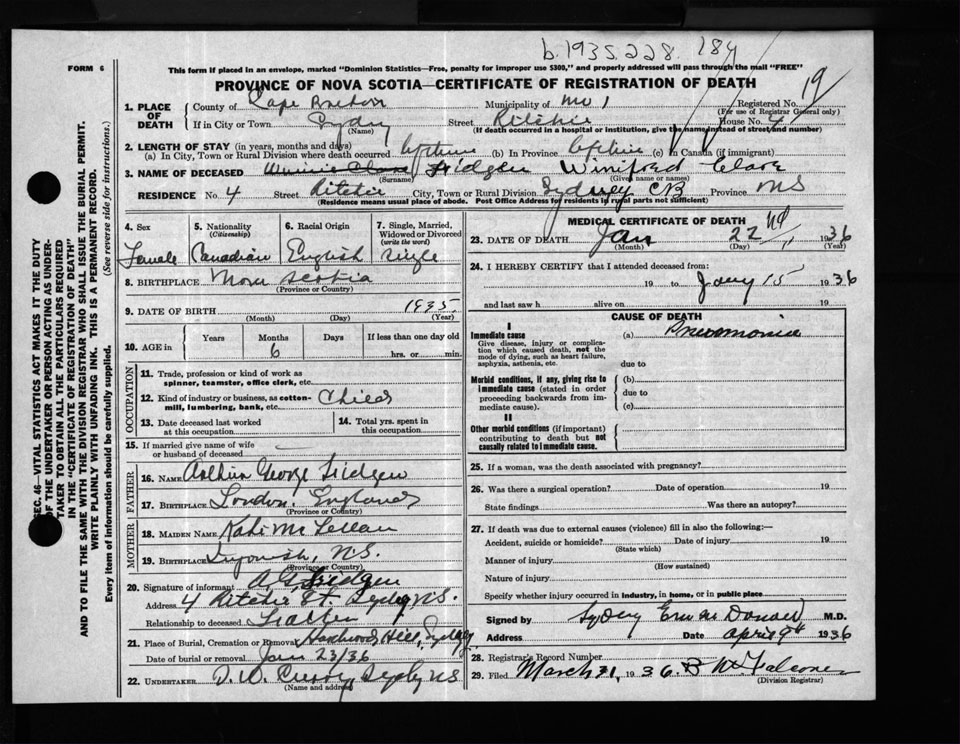 b. 1935. 228 184
FORM 6
This form if placed in an envelope, marked "Dominion Statistics—Free, penalty for improper use $300," and properly addressed will pass through the mail "FREE"
PROVINCE OF NOVA SCOTIA—CERTIFICATE OF REGISTRATION OF DEATH
19
1. PLACE OF DEATH
County of Cape Breton Municipality of No 1 Registered No.
(For use of Registrar General only)
If in City or Town Sydney Street Ritchie House No. 4
(Name) (If death occurred in a hospital or institution, give the name instead of street and number)
2. LENGTH OF STAY (in years, months and days)
(a) In City, Town or Rural Division where death occurred lifetime (b) In Province lifetime (c) In Canada (if immigrant)
3. NAME OF DECEASED Fridgen Winifred Clare
(Surname) (Given name or names)
RESIDENCE No. 4 Street Ritchie City, Town or Rural Division Sydney CB Province NS
(Residence means usual place of abode. Post Office Address for residents in rural parts not sufficient)
4. Sex 5. Nationality 6. Racial Origin 7. Single, Married, Widowed or Divorced
(Citizenship) (write the word)
Female Canadian English Single
8. BIRTHPLACE Nova Scotia
(Province or Country)
9. DATE OF BIRTH 1935
(Month) (Day) (Year)
10. AGE in Years Months Days If less than one day old
6 hrs. or min.
OCCUPATION
11. Trade, profession or kind of work as spinner, teamster, office clerk, etc.
12. Kind of industry or business, as cotton-mill, lumbering, bank, etc. Child
13. Date deceased last worked at this occupation
14. Total yrs. spent in this occupation
15. If married give name of wife or husband of deceased
FATHER
16. NAME Arthur George Fridgen
17. BIRTHPLACE London, England
(Province or Country)
MOTHER
18. MAIDEN NAME Kate McLellan
19. BIRTHPLACE N.S.
(Province or Country)
20. Signature of informant A G Fridgen
Address 4 Ritchie St. Sydney N.S.
Relationship to deceased Father
21. Place of Burial, Cremation or Removal Hardwood Hill, Sydney
Date of burial or removal Jan 23/36
22. UNDERTAKER D. W. Curry, Sydney NS
(Name and address)
MEDICAL CERTIFICATE OF DEATH
23. DATE OF DEATH Jan 22 nd 1936
(Month) (Day) (Year)
24. I HEREBY CERTIFY that I attended deceased from:
19 to Jany 15 1936
and last saw h alive on 19
CAUSE OF DEATH
I
Immediate cause (a) Pneumonia
Give disease, injury or complication which caused death, not the mode of dying, such as heart failure, asphyxia, asthenia, etc.
due to
Morbid conditions, if any, giving rise to immediate cause (stated in order proceeding backwards from immediate cause).
(b)
due to
(c)
II
Other morbid conditions (if important) contributing to death but not causally related to immediate cause.
25. If a woman, was the death associated with pregnancy?
26. Was there a surgical operation? Date of operation 19
State findings Was there an autopsy?
27. If death was due to external causes (violence) fill in also the following:—
Accident, suicide or homicide? Date of injury 19
(State which)
Manner of injury
(How sustained)
Nature of injury
Specify whether injury occurred in industry, in home, or in public place
Signed by M.D.
Address Date April 9th 1936
28. Registrar's Record Number
29. Filed March 31, 1936.
(Division Registrar)
SEC. 46—VITAL STATISTICS ACT MAKES IT THE DUTY
OF THE UNDERTAKER OR PERSON ACTING AS UNDER-
TAKER TO OBTAIN ALL THE PARTICULARS REQUIRED
IN THE "CERTIFICATE OF REGISTRATION OF DEATH"
AND TO FILE THE SAME WITH THE DIVISION REGISTRAR WHO SHALL ISSUE THE BURIAL PERMIT.
WRITE PLAINLY WITH UNFADING INK. THIS IS A PERMANENT RECORD.
Every item of information should be carefully supplied. (See reverse side for instructions.)